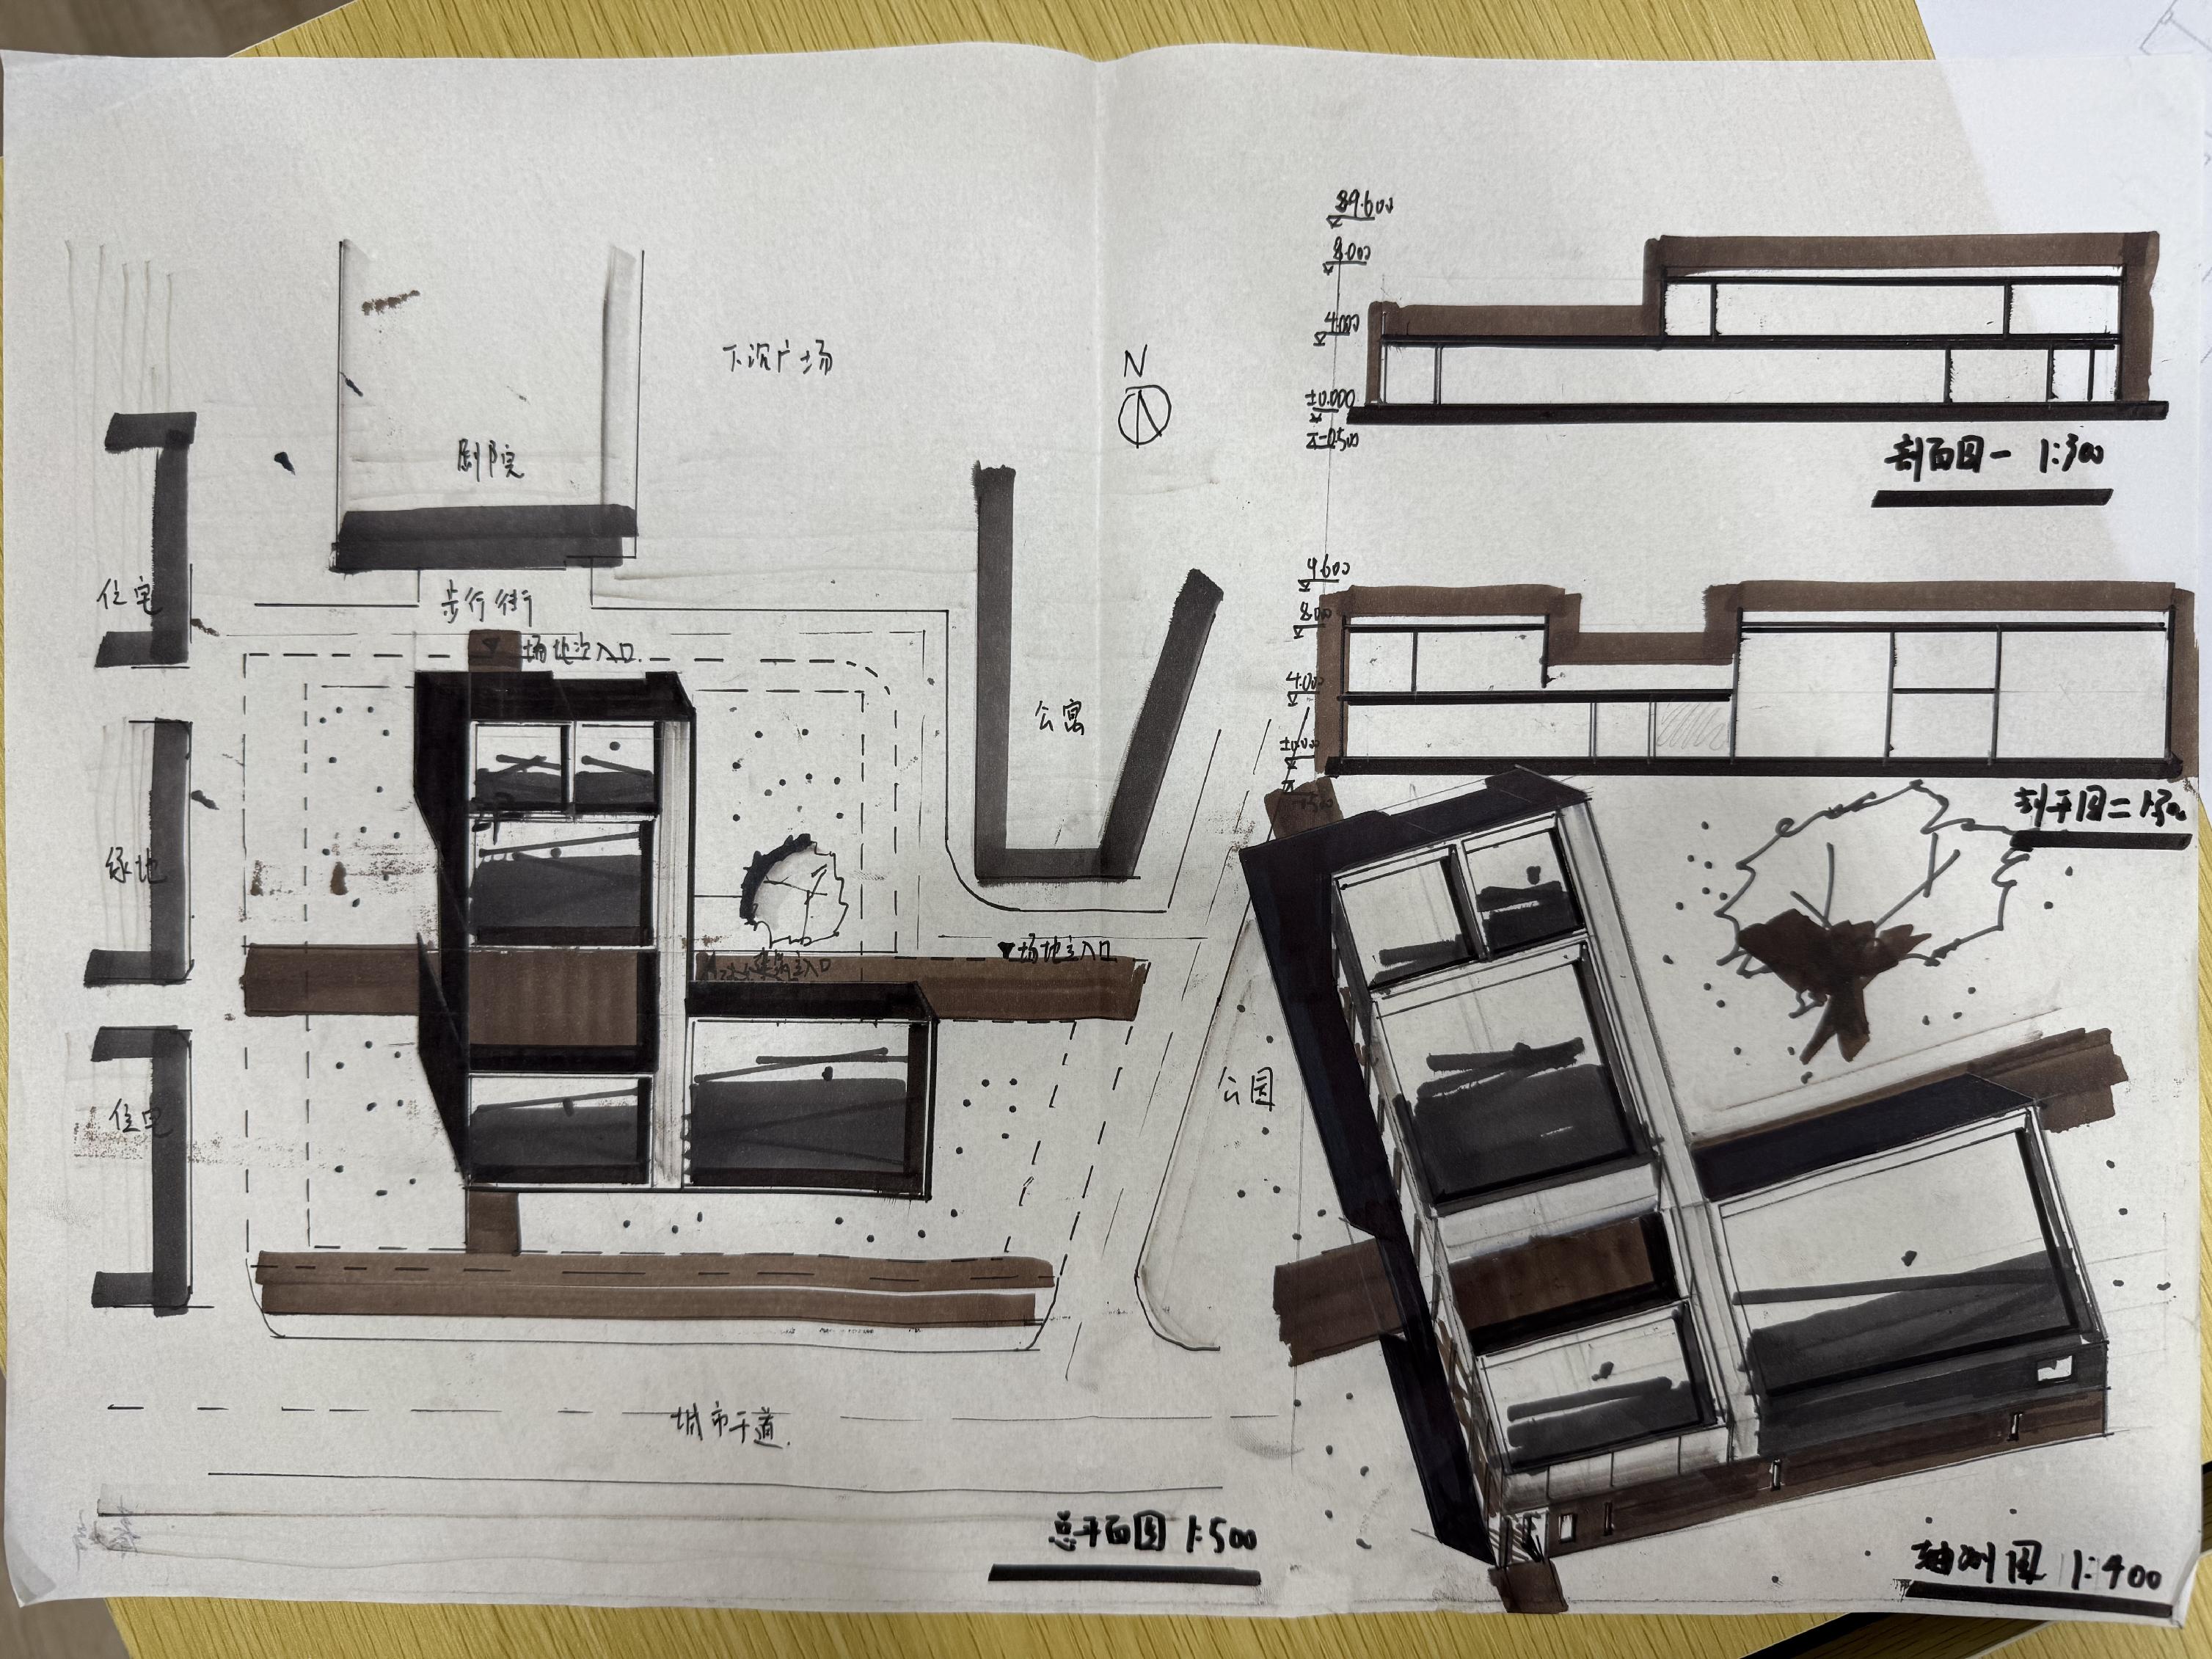 下沉广场
N
剧院
住宅
步行街
场地次入口
公寓
绿地
场地主入口
主入口
公园
住宅
城市干道
总平面图 1:500
9.600
8.000
4.000
±0.000
-0.500
剖面图一 1:300
9.600
8.000
4.000
±0.000
剖平图二 1:300
轴测图 1:400